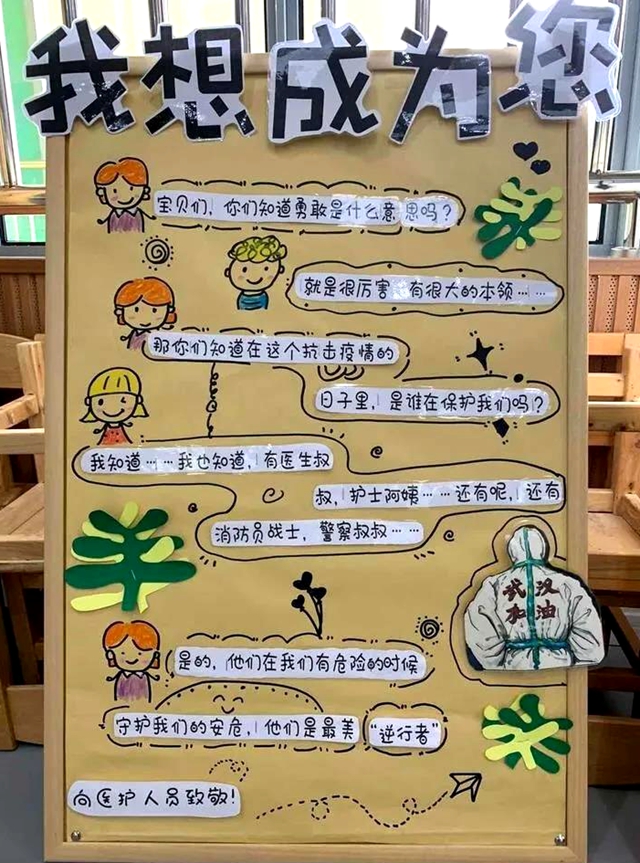 我想成为您
宝贝们，你们知道勇敢是什么意思吗？
就是很厉害 有很大的本领……
那你们知道在这个抗击疫情的
日子里，是谁在保护我们吗？
我知道……我也知道，有医生叔
叔，护士阿姨……还有呢，还有
消防员战士，警察叔叔……
武汉
加油
是的，他们在我们有危险的时候
守护我们的安危，他们是最美“逆行者”
向医护人员致敬！